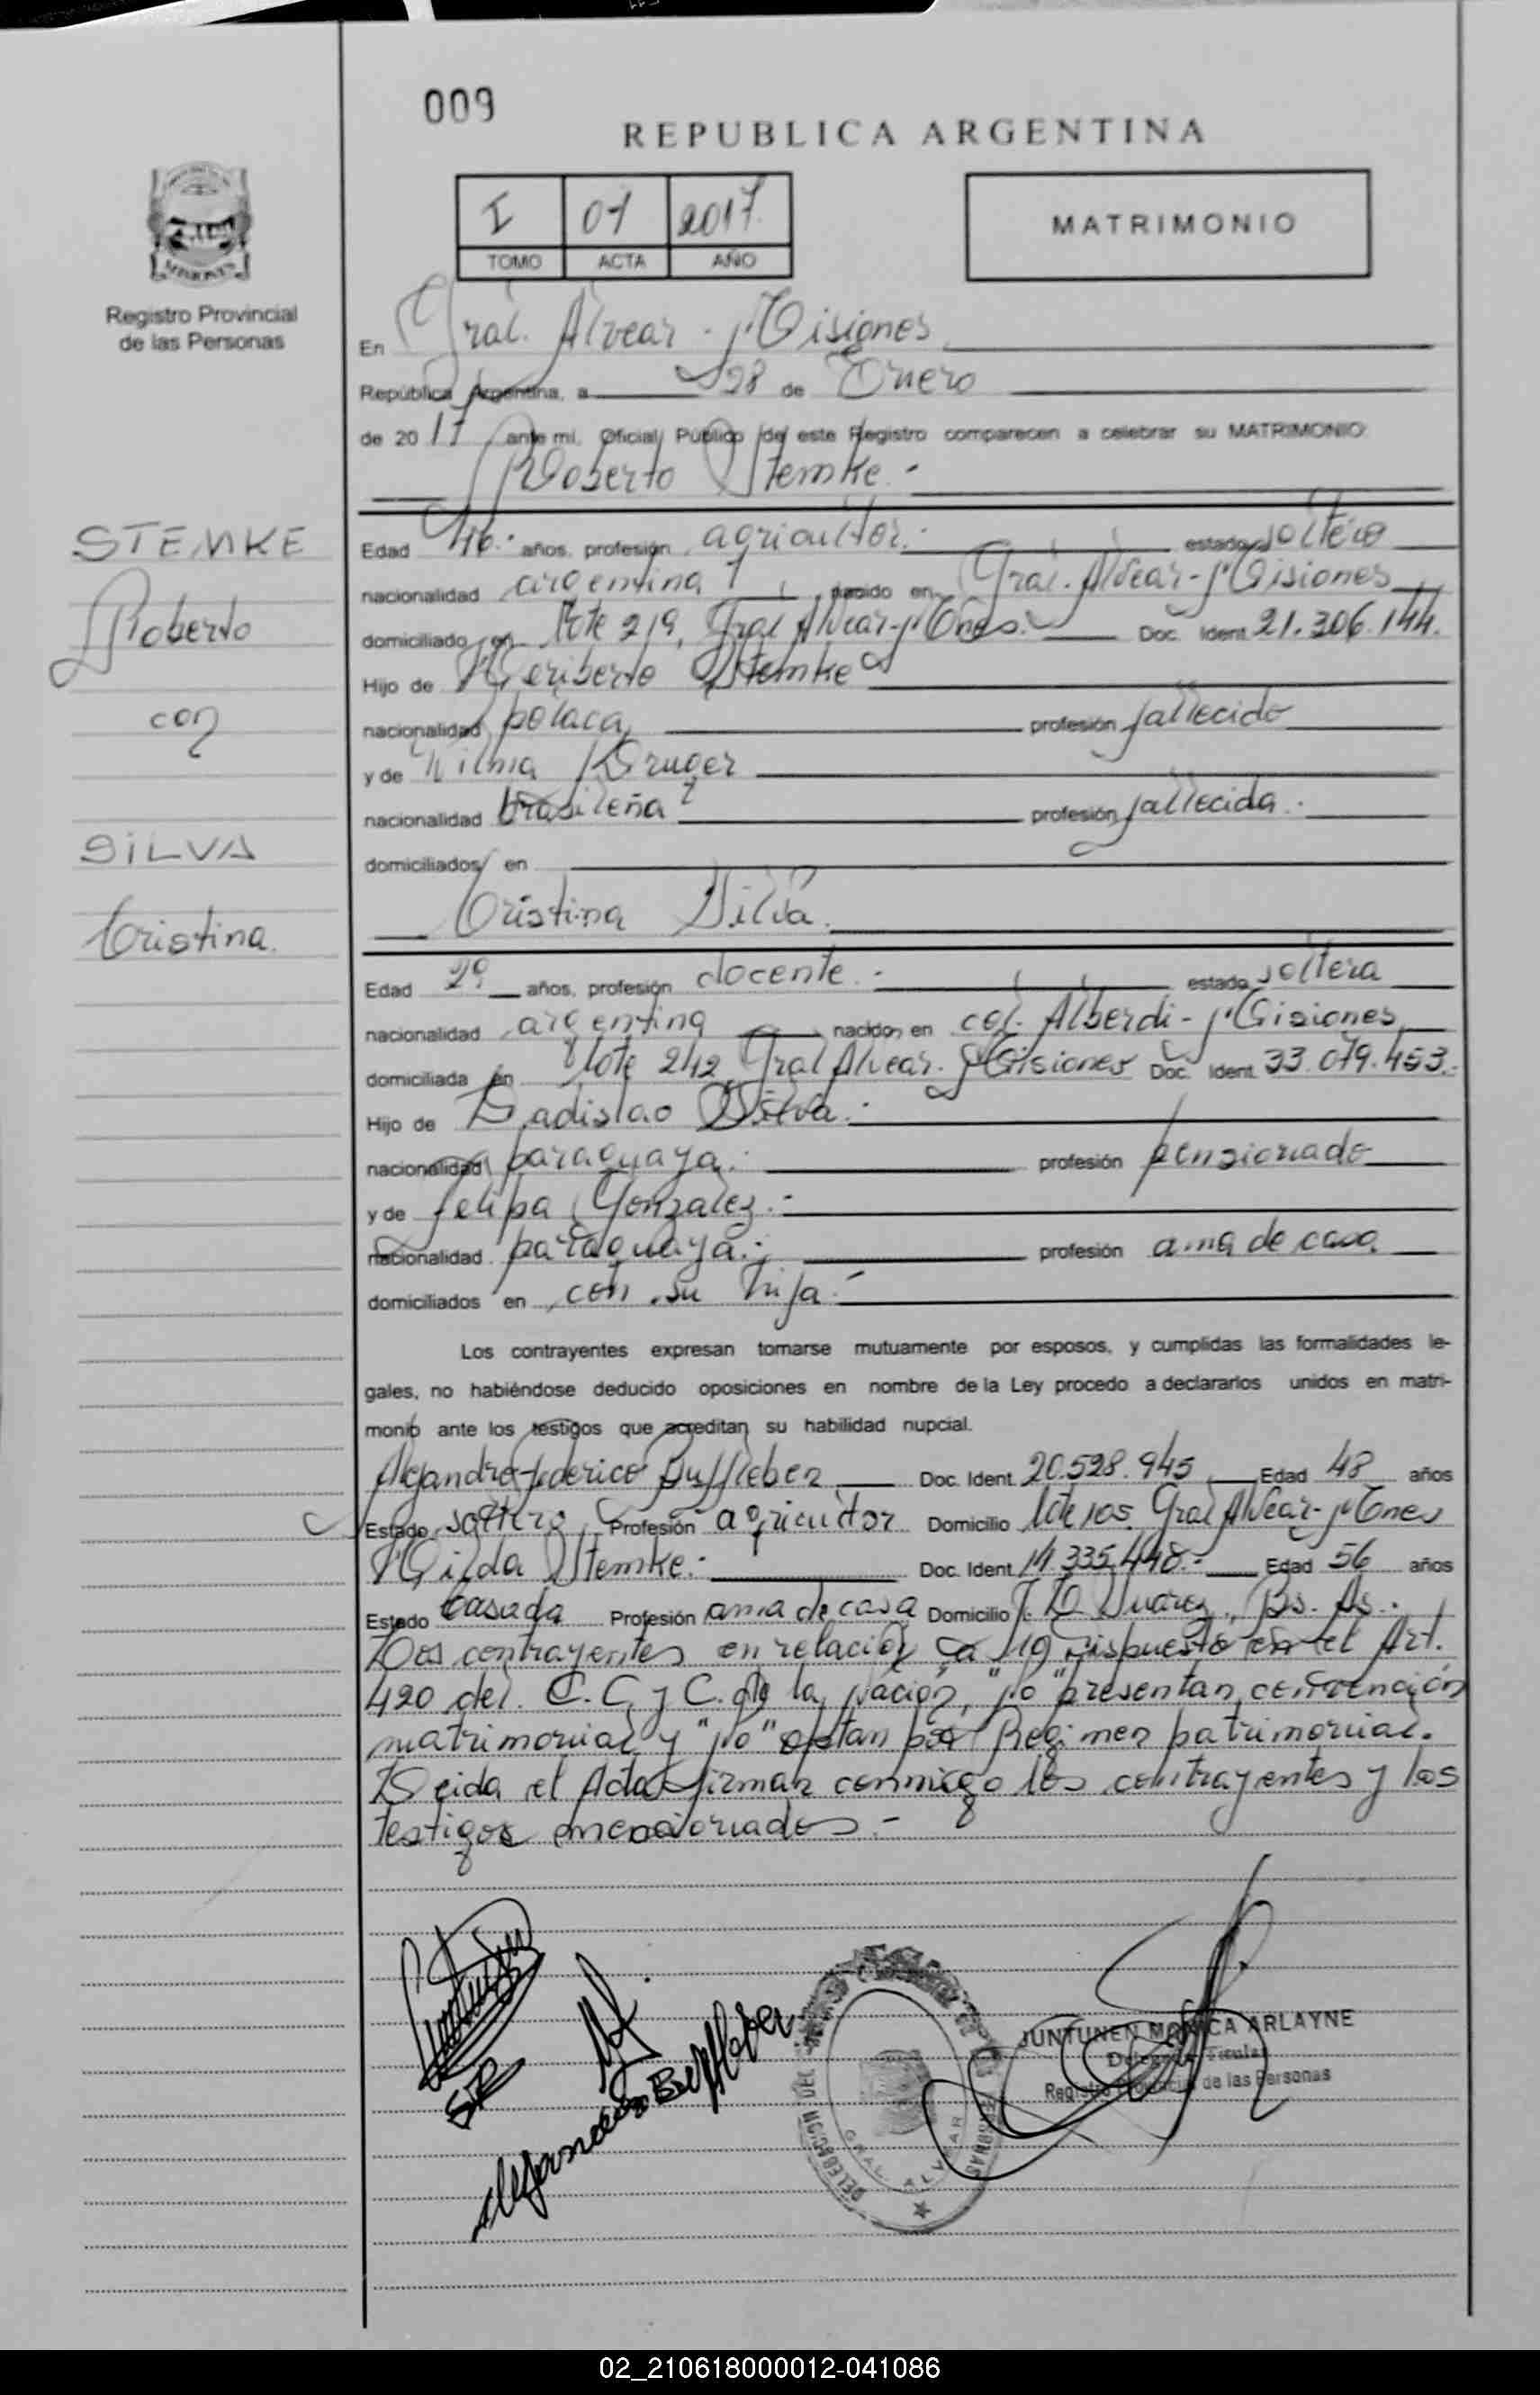 009
REPUBLICA ARGENTINA
I 01 2017
TOMO ACTA AÑO
MATRIMONIO
Registro Provincial
de las Personas
En Gral. Alvear - Misiones
República Argentina, a 28 de Enero
de 2017 ante mi, Oficial Público de este Registro comparecen a celebrar su MATRIMONIO:
Roberto Stemke.-
STEMKE
Roberto
con
SILVA
Cristina.
Edad 46.- años, profesión agricultor.- estado soltero
nacionalidad argentina nacido en Gral. Alvear - Misiones
domiciliado en lote 219, Gral Alvear-Mnes. Doc. Ident. 21.306.144.
Hijo de Heriberto Stemke
nacionalidad polaca profesión fallecido
y de Wilma Kruger
nacionalidad brasileña profesión fallecida.-
domiciliados en
Cristina Silva.
Edad 29 años, profesión docente.- estado soltera
nacionalidad argentina nacido en col. Alberdi - Misiones
domiciliada en lote 242 Gral Alvear. Misiones Doc. Ident. 33.079.453.-
Hijo de Ladislao Silva.-
nacionalidad paraguaya.- profesión pensionado
y de Felipa Gonzalez.-
nacionalidad paraguaya.- profesión ama de casa.
domiciliados en con su hija.-
Los contrayentes expresan tomarse mutuamente por esposos, y cumplidas las formalidades le-
gales, no habiéndose deducido oposiciones en nombre de la Ley procedo a declararlos unidos en matri-
monio ante los testigos que acreditan su habilidad nupcial.
Alejandro Federico Buffleben Doc. Ident. 20.528.945 Edad 48 años
Estado soltero Profesión agricultor Domicilio lote 105. Gral Alvear-Mnes
Hilda Stemke.- Doc. Ident. 14.335.448.- Edad 56 años
Estado casada Profesión ama de casa Domicilio Suarez, Bs. As.
Los contrayentes en relación a lo dispuesto en el Art.
420 del C.C. y C. de la Nación, "No" presentan convención
matrimonial y "No" optan por Regimen patrimonial.
Leida el Acta firman conmigo los contrayentes y los
testigos mencionados.-
SR
Alejandro Buffleben
DELEGACION DEL
GRAL. ALVEAR
JUNTUNEN MONICA ARLAYNE
Delegada Titular
Registro Provincial de las Personas
02_210618000012-041086